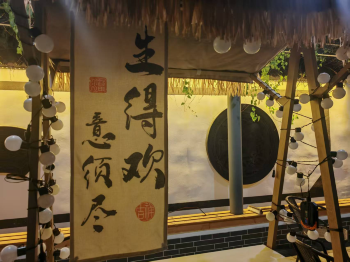 生得欢
意须尽